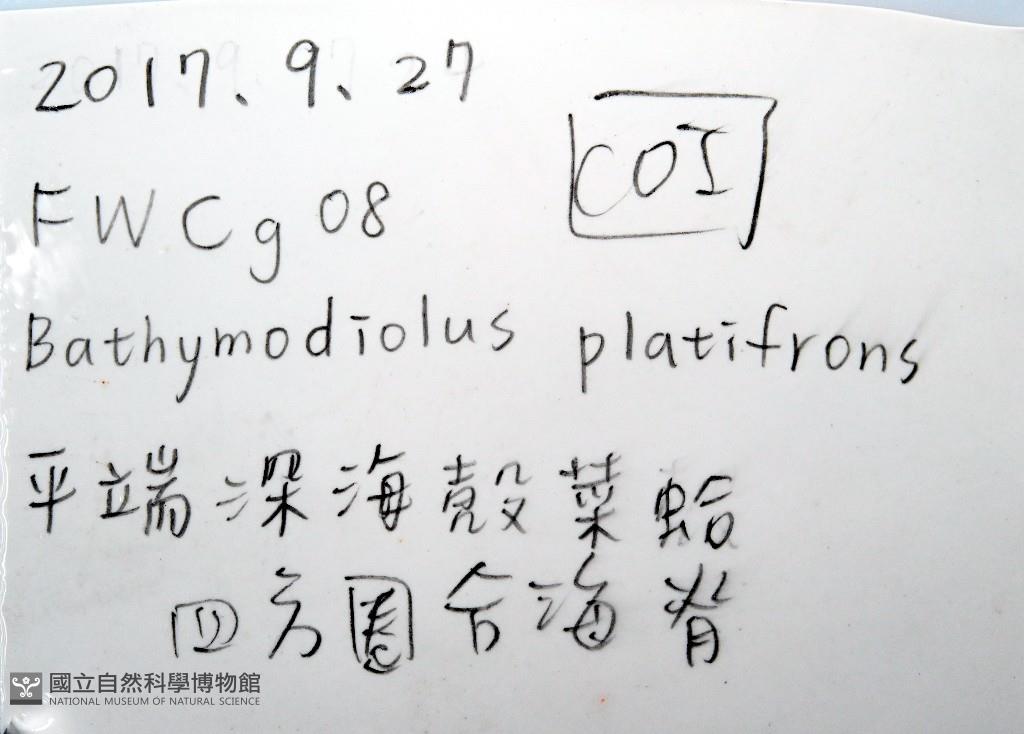 2017、9、27
COI
FWCg08
Bathymodiolus platifrons
平端深海殼菜蛤
四方圈合海脊
國立自然科學博物館
NATIONAL MUSEUM OF NATURAL SCIENCE